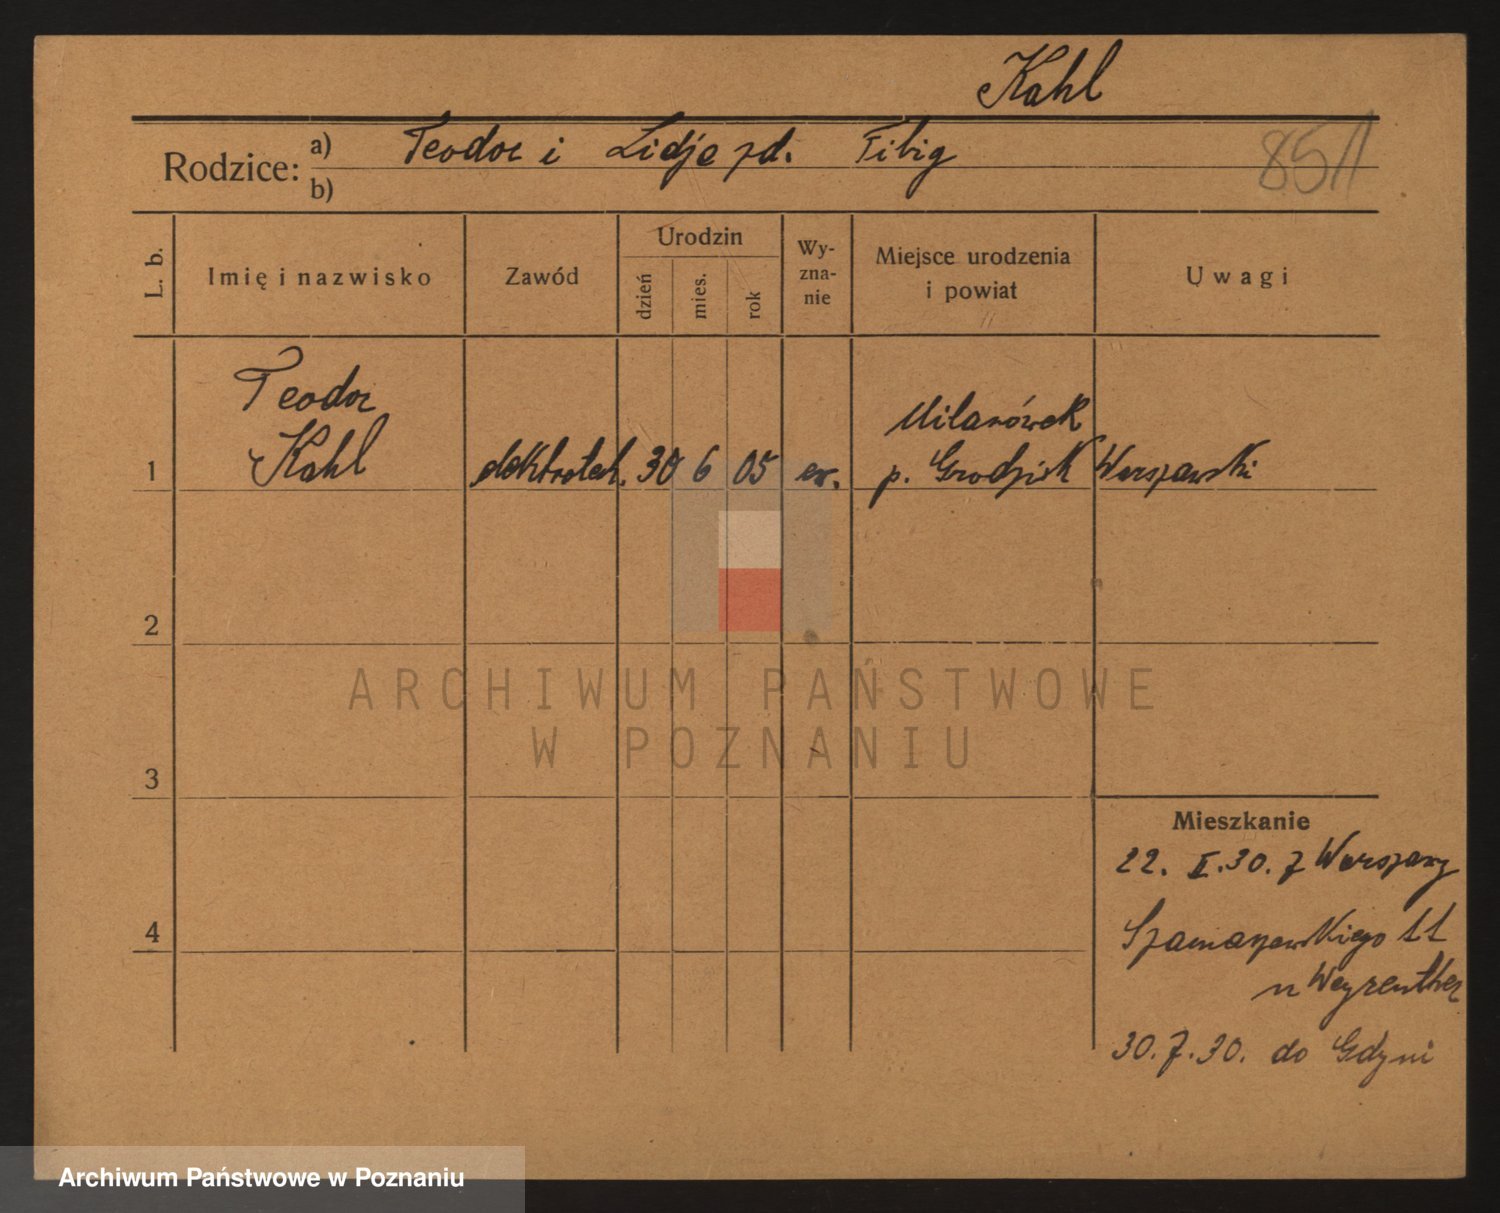 Kahl
Rodzice: a) Teodor i Lidje zd. Fibig
b)
8511
L. b.
Imię i nazwisko
Zawód
Urodzin
dzień
mies.
rok
Wy-
zna-
nie
Miejsce urodzenia
i powiat
Uwagi
Teodor
Kahl
Milanówek
1
elektrotech. 30 6 05 ew. p. Grodzisk Warszawski
2
ARCHIWUM PAŃSTWOWE
W POZNANIU
3
Mieszkanie
22. II. 30. z Warszawy
4
Szamarzewskiego 11
u Weyreuther
30. 7. 30. do Gdyni
Archiwum Państwowe w Poznaniu